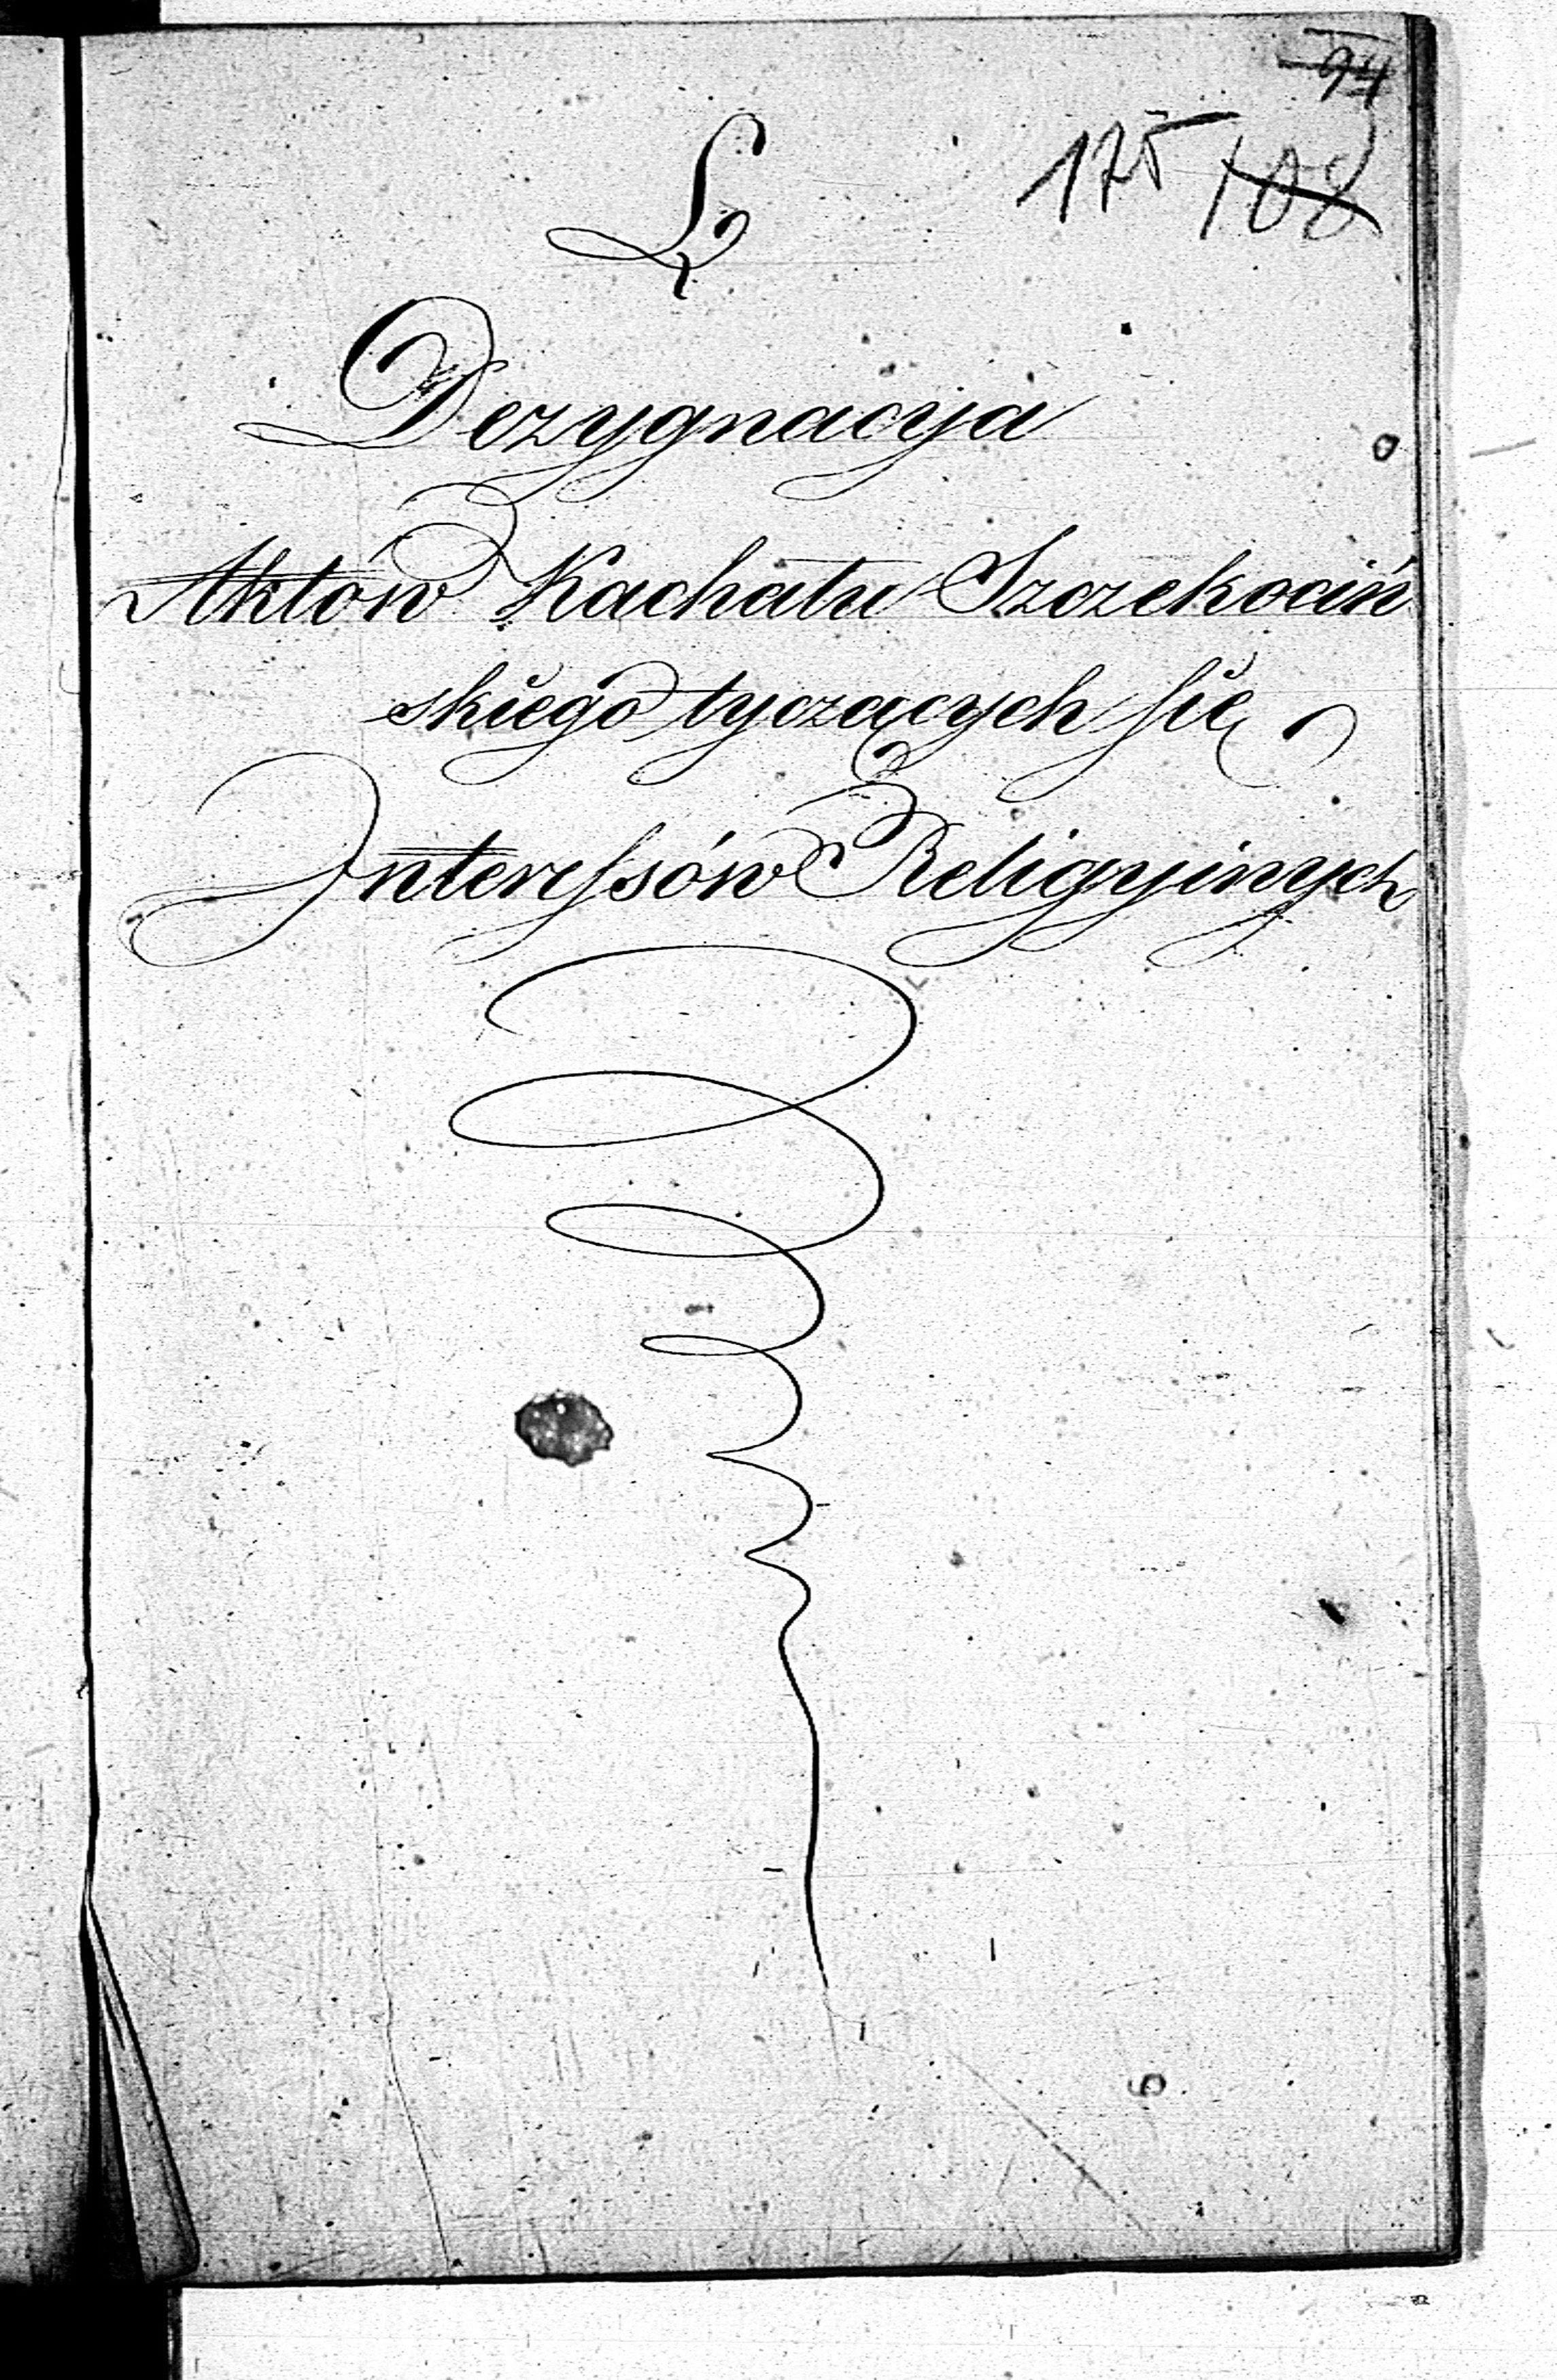 94
175 108
L
Dezygnacya
Aktów Kachału Szczekociń
skiego tyczących się
Interessów Religyinych